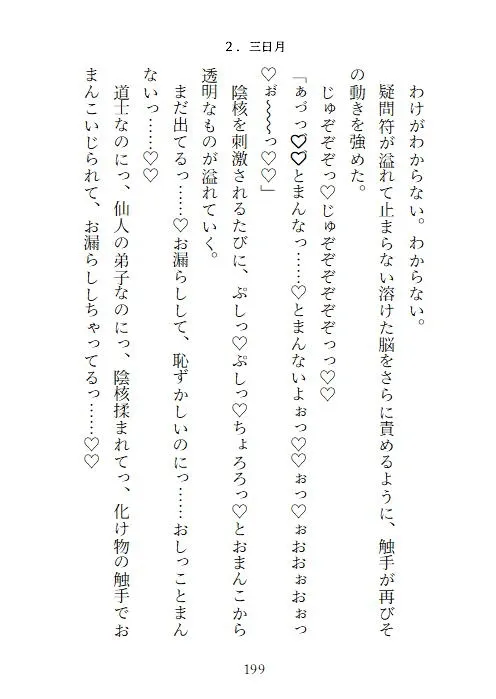 2．三日月
わけがわからない。わからない。
疑問符が溢れて止まらない溶けた脳をさらに責めるように、触手が再びそ
の動きを強めた。
じゅぞぞぞっ♡じゅぞぞぞぞぞぞっっ♡♡
「ぁ゛っっ♡♡゛とまんなっ……♡とまんないよぉっ♡♡ぉっ♡ぉおおぉおぉっ
♡ぉ゛～～～っ♡♡」
陰核を刺激されるたびに、ぷしっ♡ぷしっ♡ちょろろっ♡とおまんこから
透明なものが溢れていく。
まだ出てるっ……♡お漏らしして、恥ずかしいのにっ……おしっことまん
ないっ……♡♡
道士なのにっ、仙人の弟子なのにっ、陰核揉まれてっ、化け物の触手でお
まんこいじられて、お漏らししちゃってるっ……♡♡
199